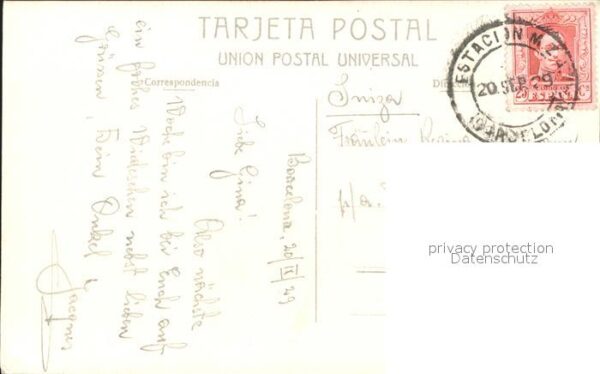 TARJETA POSTAL
UNION POSTAL UNIVERSAL
Correspondencia
ESTACION M.Z.A.
20 SEP. 29
BARCELONA
25
Suiza
Fräulein Regina
p/a.
Barcelona, 20/IX/29
Liebe Gina!
Also nächste
Woche bin ich bei Euch auf
ein frohes Wiedersehen nebst lieben
Grüssen, Dein Onkel
Jacques
privacy protection
Datenschutz